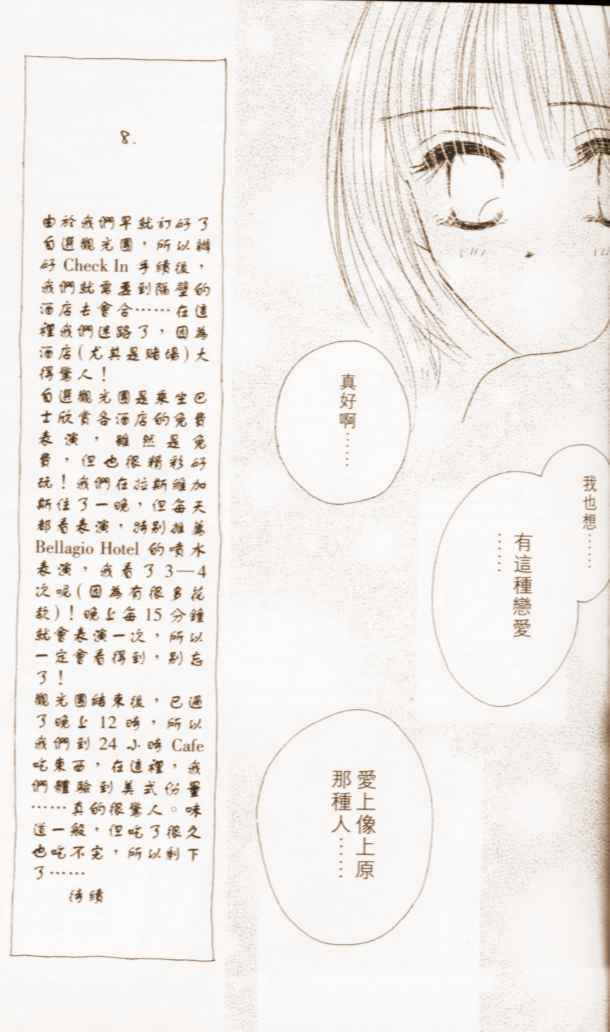 真好啊……
我也想……
有這種戀愛
……
愛上像上原
那種人……
8.
由於我們早就訂好了
自選觀光團,所以辦
好 Check In 手續後,
我們就需要到隔壁的
酒店去會合……在這
裡我們迷路了,因為
酒店(尤其是賭場)大
得驚人!
自選觀光團是乘坐巴
士欣賞各酒店的免費
表演,雖然是免
費,但也很精彩好
玩!我們在拉斯維加
斯住了一晚,但每天
都看表演,特別推薦
Bellagio Hotel 的噴水
表演,我看了 3—4
次呢(因為有很多花
款)!晚上每 15 分鐘
就會表演一次,所以
一定會看得到,別忘
了!
觀光團結束後,已過
了晚上 12 時,所以
我們到 24 小時 Cafe
吃東西,在這裡,我
們體驗到美式份量
……真的很驚人。味
道一般,但吃了很久
也吃不完,所以剩下
了……
待續